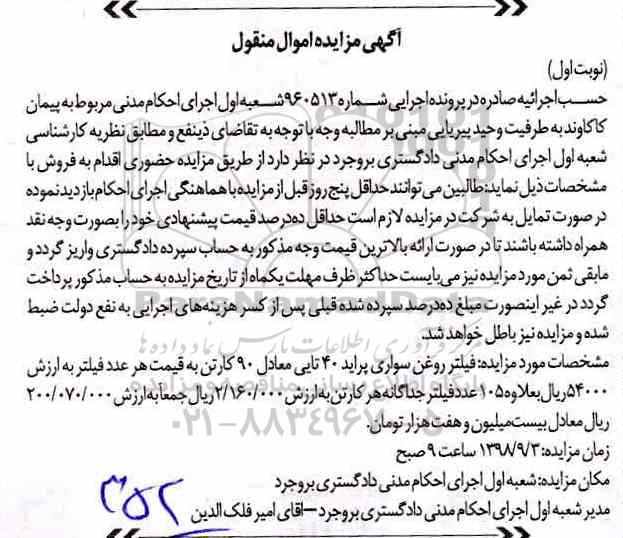 آگهی مزایده اموال منقول
(نوبت اول)
حسب اجرائیه صادره در پرونده اجرایی شماره ۹۶۰۵۱۳ شعبه اول اجرای احکام مدنی مربوط به پیمان
کاکاوند به طرفیت وحید پیریایی مبنی بر مطالبه وجه با توجه به تقاضای ذینفع و مطابق نظریه کارشناسی
شعبه اول اجرای احکام مدنی دادگستری بروجرد در نظر دارد از طریق مزایده حضوری اقدام به فروش با
مشخصات ذیل نماید: طالبین می‌توانند حداقل پنج روز قبل از مزایده با هماهنگی اجرای احکام بازدید نموده
در صورت تمایل به شرکت در مزایده لازم است حداقل ده درصد قیمت پیشنهادی خود را بصورت وجه نقد
همراه داشته باشند تا در صورت ارائه بالاترین قیمت وجه مذکور به حساب سپرده دادگستری واریز گردد و
مابقی ثمن مورد مزایده نیز می‌بایست حداکثر ظرف مهلت یکماه از تاریخ مزایده به حساب مذکور پرداخت
گردد در غیر اینصورت مبلغ ده درصد سپرده شده قبلی پس از کسر هزینه‌های اجرایی به نفع دولت ضبط
شده و مزایده نیز باطل خواهد شد.
مشخصات مورد مزایده: فیلتر روغن سواری پراید ۴۰ تایی معادل ۹۰ کارتن به قیمت هر عدد فیلتر به ارزش
۵۴۰۰۰ ریال بعلاوه ۱۰۵ عدد فیلتر جداگانه هر کارتن به ارزش ۲/۱۶۰/۰۰۰ ریال جمعا به ارزش ۲۰۰/۰۷۰/۰۰۰
ریال معادل بیست میلیون و هفت هزار تومان.
زمان مزایده: ۱۳۹۸/۹/۳ ساعت ۹ صبح
مکان مزایده: شعبه اول اجرای احکام مدنی دادگستری بروجرد
مدیر شعبه اول اجرای احکام مدنی دادگستری بروجرد – اقای امیر فلک الدین
ParsNamadData
۰۲۱-۸۸۳۴۹۶۷۰-۵